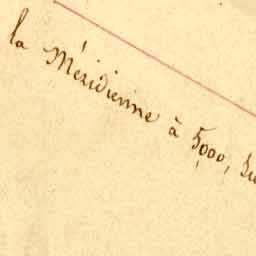 la Méridienne à 5,000,